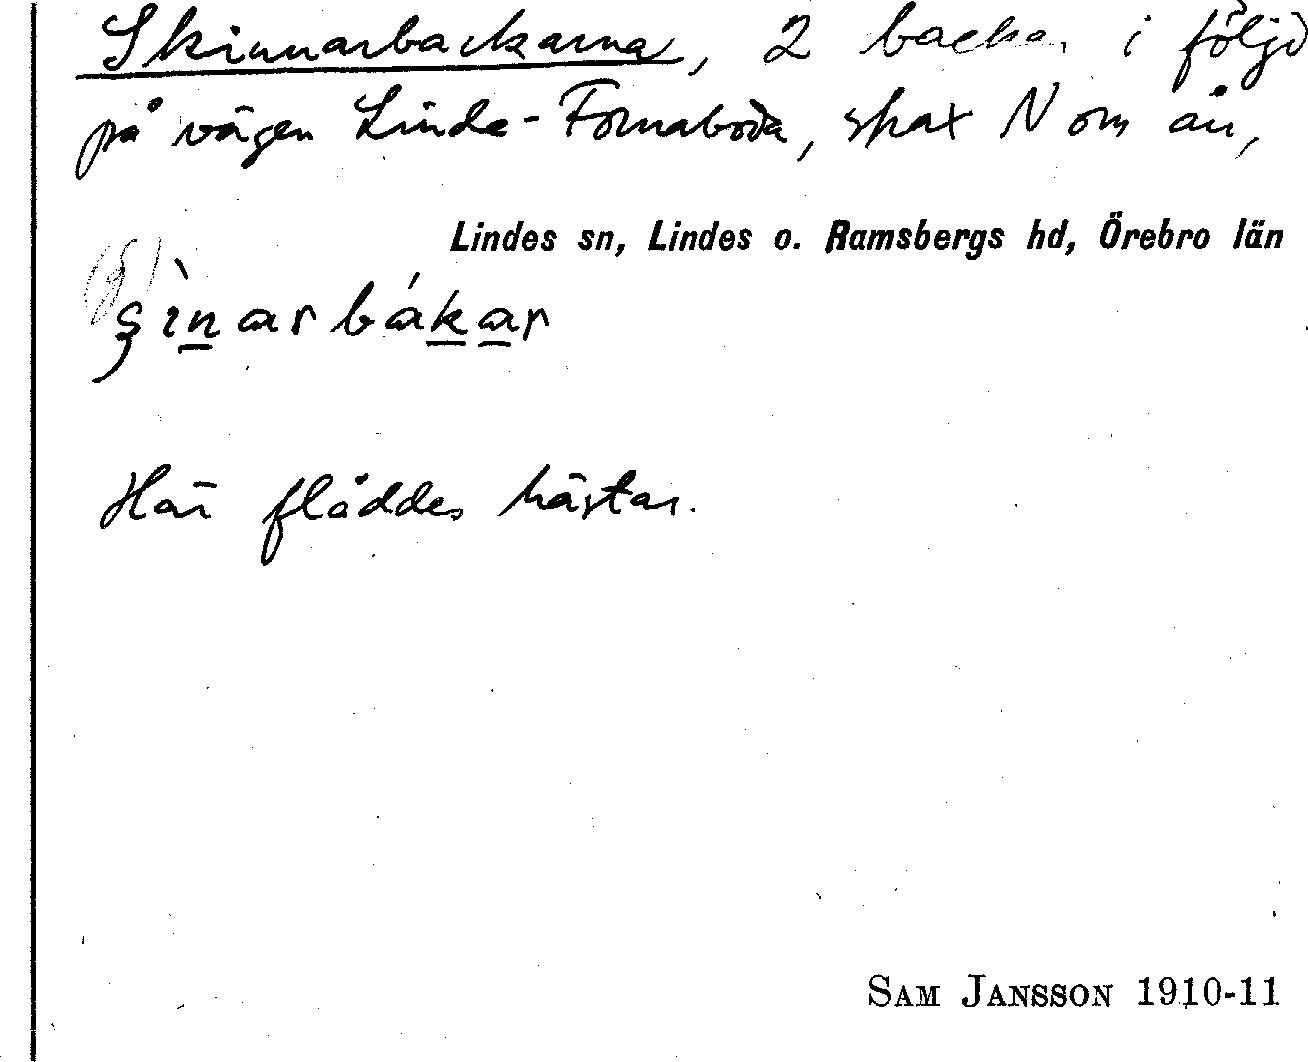 Skinnarbackarna, 2 backar i följd
på vägen Linde-Fornaboda, strax N om ån,
Lindes sn, Lindes o. Ramsbergs hd, Örebro län
Här flåddes hästar.
SAM JANSSON 1910-11